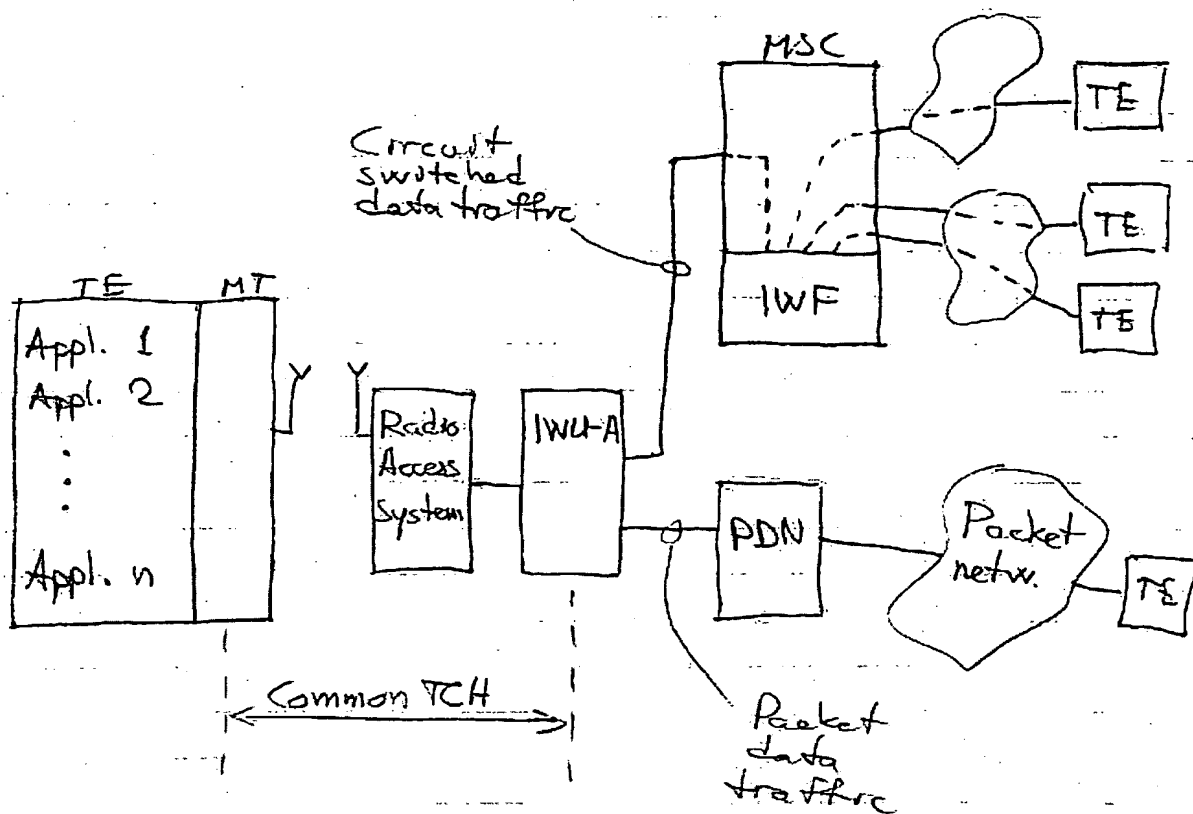 MSC
TE
Circuit
switched
data traffic
TE
IWF
TE
TE MT
Appl. 1
Appl. 2
Appl. n
Radio
Access
System
IWU-A
PDN
Packet
netw.
TE
Common TCH
Packet
data
traffic